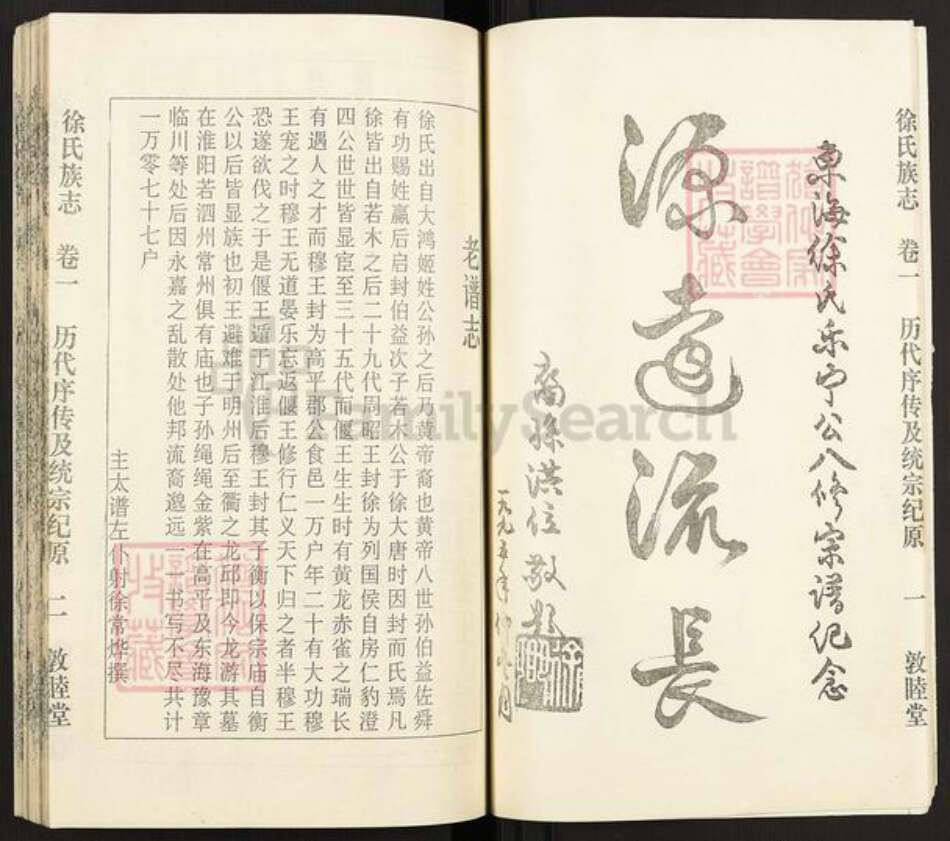 徐氏族志 卷一 历代序传及统宗纪原 一 敦睦堂
东海徐氏乐宁公八修宗谱纪念
源远流长
裔孙洪位敬题
一九九五年仲 月
老谱志
徐氏出自大鸿姬姓公孙之后乃黄帝裔也黄帝八世孙伯益佐舜
有功赐姓嬴后启封伯益次子若木公于徐大唐时因封而氏焉凡
徐皆出自若木之后二十九代周昭王封徐为列国侯自房仁豹澄
四公世世皆显宦至三十五代而偃王生生时有黄龙赤雀之瑞长
有遇人之才而穆王封为高平郡公食邑一万户年二十有大功穆
王宠之时穆王无道晏乐忘返偃王修行仁义天下归之者半穆王
恐遂欲伐之于是偃王遁于江淮后穆王封其子衡以保宗庙自衡
公以后皆显族也初王避难于明州后至衢之龙邱即今龙游其墓
在淮阳若泗州常州俱有庙也子孙绳绳金紫在高平及东海豫章
临川等处后因永嘉之乱散处他邦流裔邈远一一书写不尽共计
一万零七十七户
主太谱左仆射徐常烨撰
徐氏族志 卷一 历代序传及统宗纪原 二 敦睦堂
FamilySearch